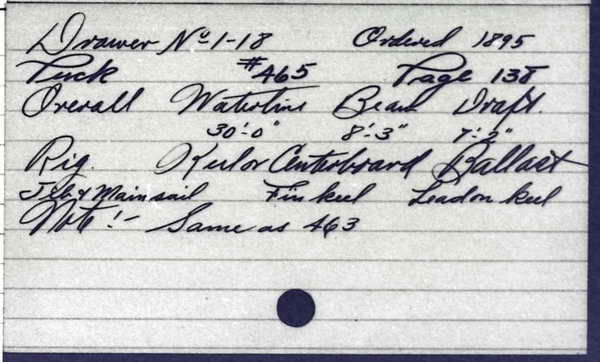 Drawer No 1-18 Ordered 1895
Puck #465 Page 138
Overall Waterline Beam Draft.
30'-0" 8'-3" 7'-2"
Rig Keel or Centerboard Ballast
Jib & Mainsail Fin keel Lead on keel
Note!- Same as 463